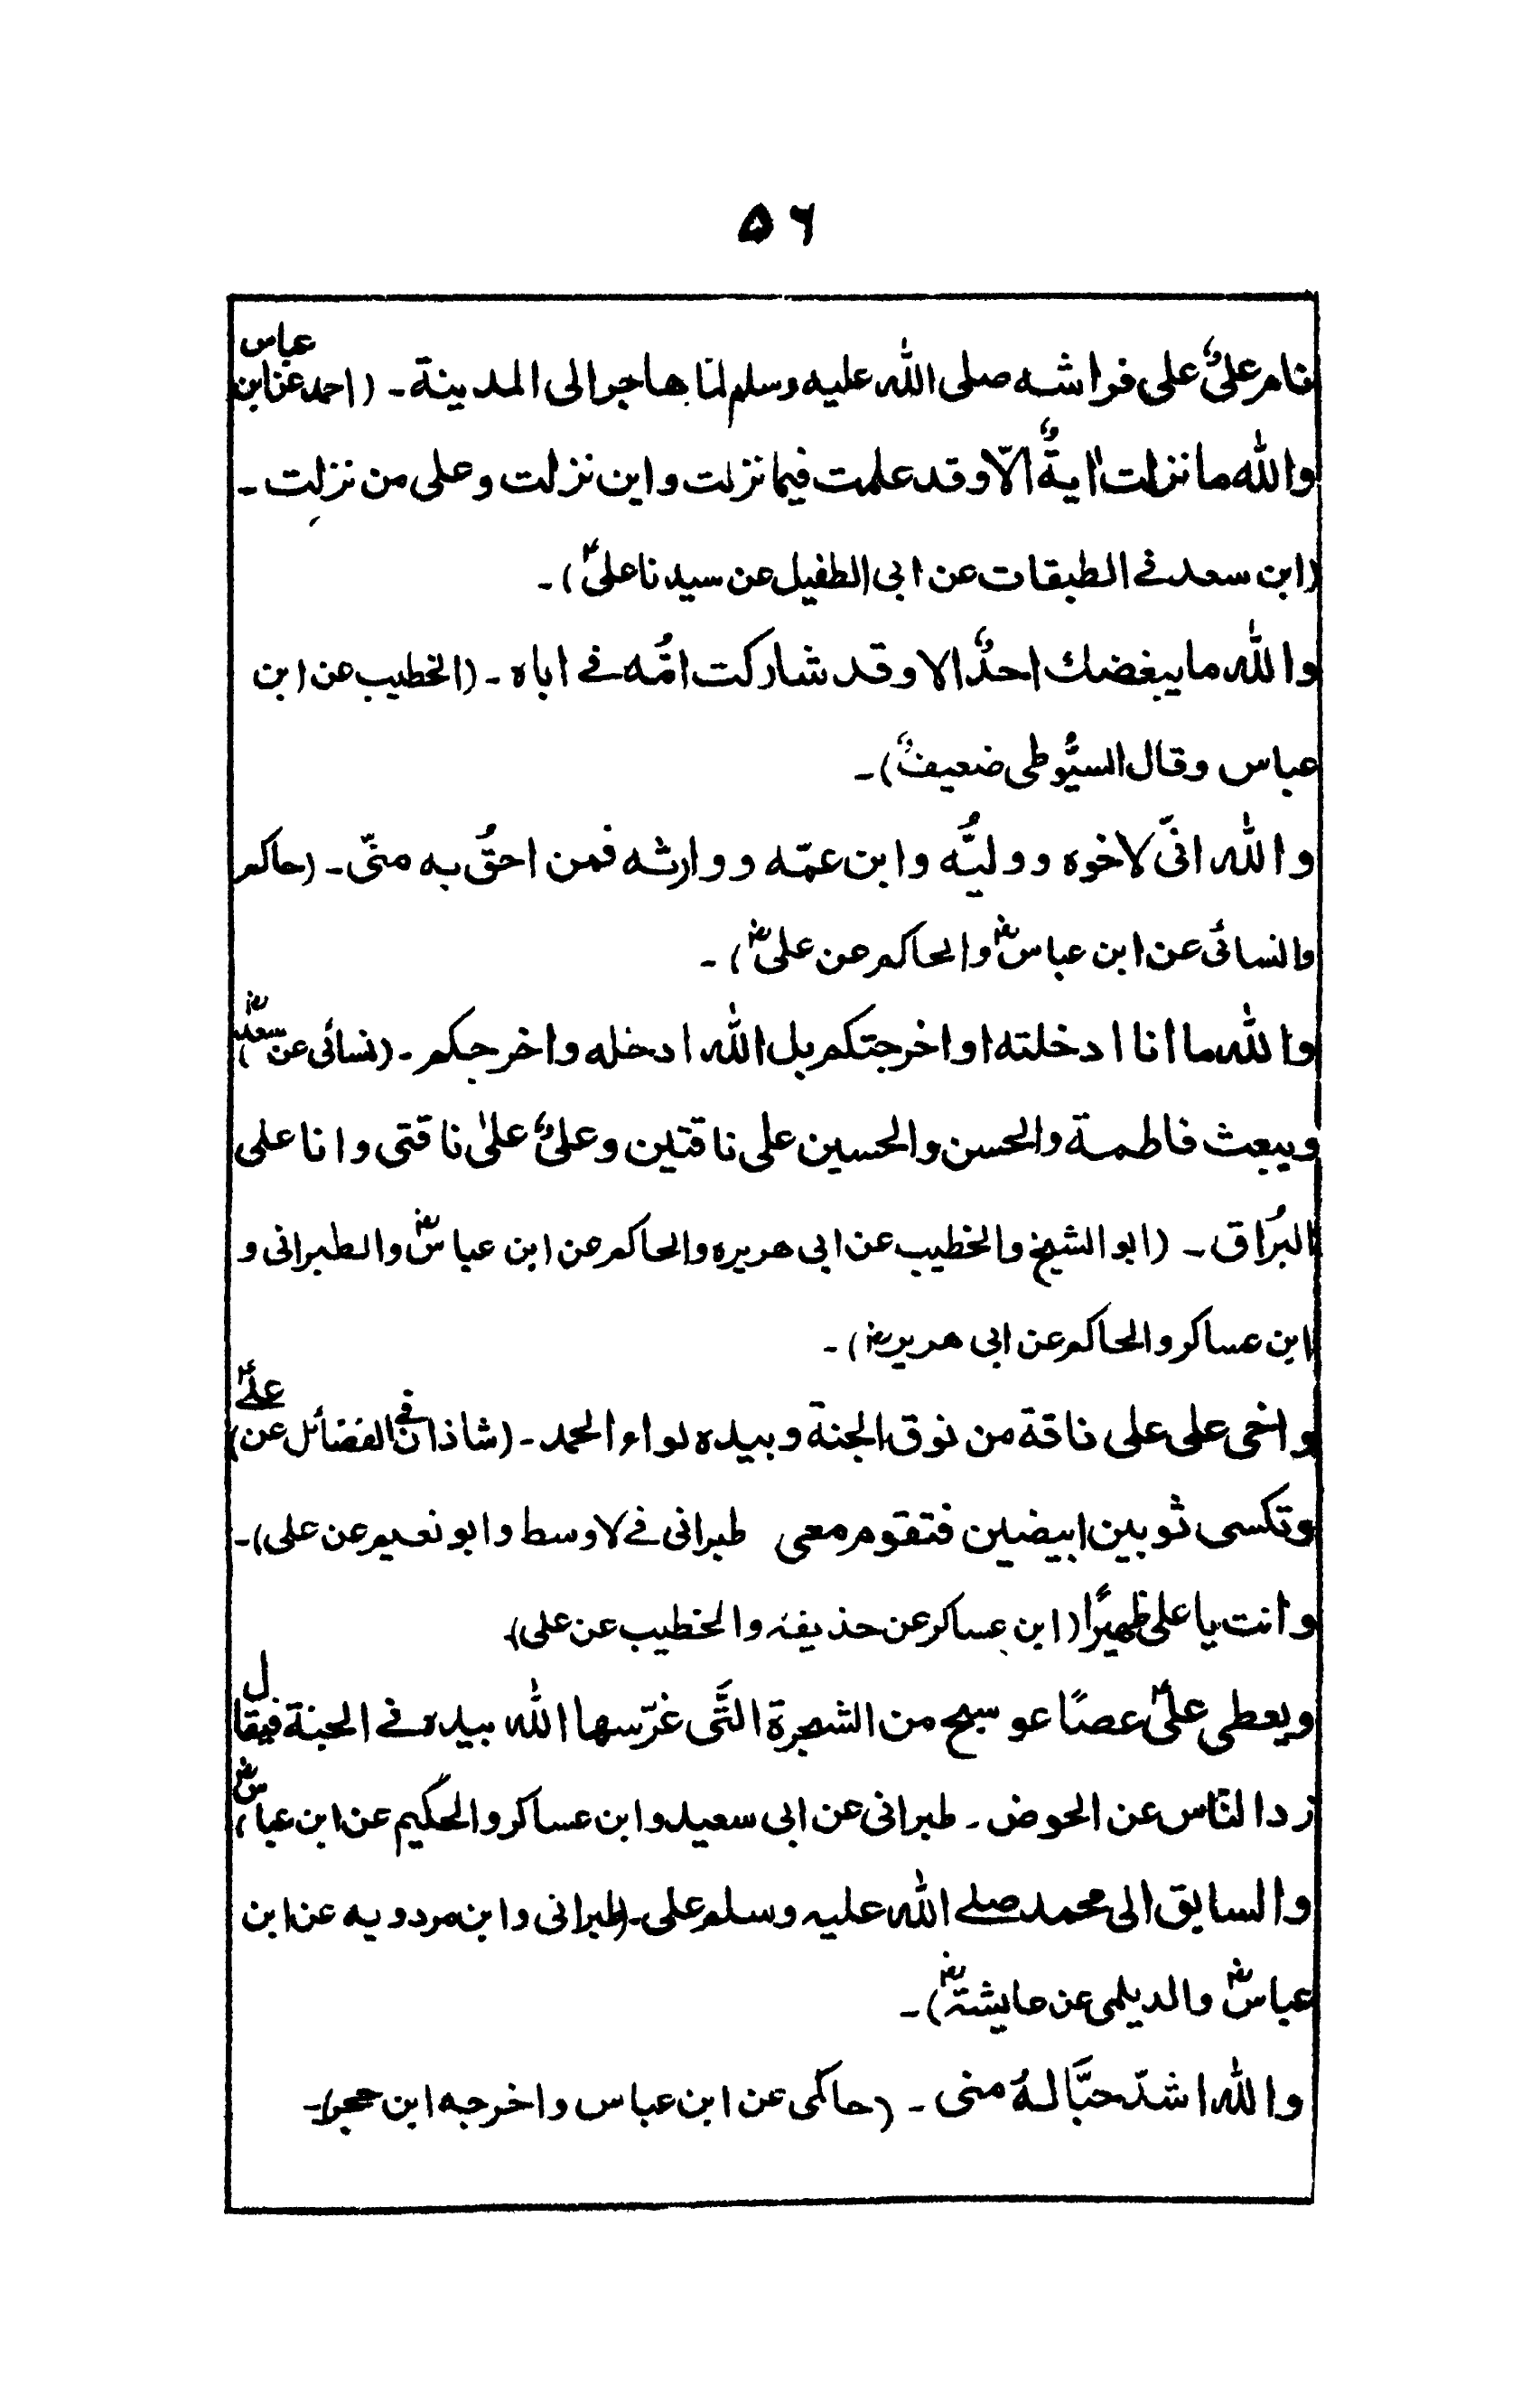 ۵۶
نام علیٌّ علی فراشه صلی الله علیه وسلم لمّا هاجر الی المدینة ۔ (احمد عن ابن عباس
والله ما نزلت اٰیةٌ الّا وقد علمت فیما نزلت واین نزلت وعلی من نزلت ۔
(ابن سعد فے الطبقات عن ابی الطفیل عن سیدنا علیؓ) ۔
والله ما یبغضك احدٌ الا وقد شارکت امُّه فے اباه ۔ (الخطیب عن ابن
عباس وقال السیُّوطی ضعیفٌ) ۔
والله انّی لاخوه وولیُّه وابن عمّه ووارثه فمن احقُّ به منّی ۔ (حاکم
والنسائی عن ابن عباسؓ والحاکم عن علیؓ) ۔
والله ما انا ادخلته او اخرجتکم بل الله ادخله واخرجکم ۔ (نسائی عن سعدؓ)
ویبعث فاطمة والحسن والحسین علی ناقتین وعلیٌّ علیٰ ناقتی وانا علی
البُراق ۔ (ابو الشیخ والخطیب عن ابی هریره والحاکم عن ابن عباسؓ والطبرانی و
ابن عساکر والحاکم عن ابی هریرہؓ) ۔
واخی علی علی ناقة من نوق الجنة وبیده لواء الحمد ۔ (شاذان فی الفضائل عن علیؓ)
وتکسی ثوبین ابیضین فتقوم معی طبرانی فے لاوسط وابو نعیم عن علی) ۔
وانت یا علی ظهیرًا (ابن عساکر عن حذیفہ والخطیب عن علی)
ویعطی علیؓ عصًا عوسج من الشجرة الَّتی غرّسها الله بیده فے الجنة فیقال
زد النّاس عن الحوض ۔ طبرانی عن ابی سعید وابن عساکر والحکیم عن ابن عباسؓ)
والسابق الی محمد صلے الله علیہ وسلم علی ۔ (طبرانی وابن مردویه عن ابن
عباسؓ والدیلمی عن عایشتہؓ) ۔
والله اشدّ حبًّا لهٗ منی ۔ (حاکمی عن ابن عباس واخرجه ابن حجر) ۔